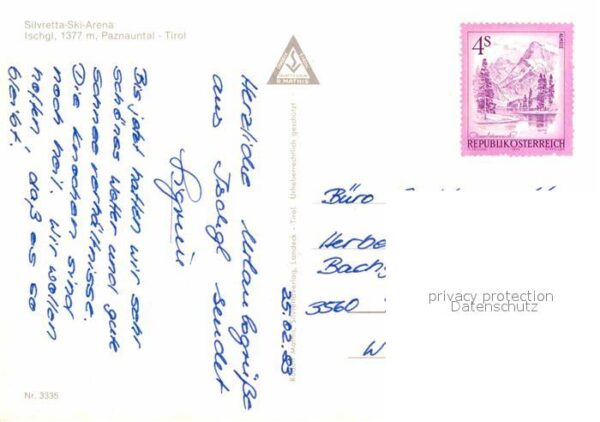 Silvretta-Ski-Arena
Ischgl, 1377 m, Paznauntal - Tirol
Bis jetzt hatten wir sehr
schönes Wetter und gute
Schneeverhältnisse.
Die Knochen sind
noch heil. Wir wollen
hoffen, daß es so
bleibt.
Herzliche Urlaubsgrüße
aus Ischgl sendet
25.02.83
R. MATHIS
Landeck - Tirol. Urheberrechtlich geschützt
4 S
REPUBLIK ÖSTERREICH
Büro
Herbe
Bach
3560
W
privacy protection
Datenschutz
Nr. 3335